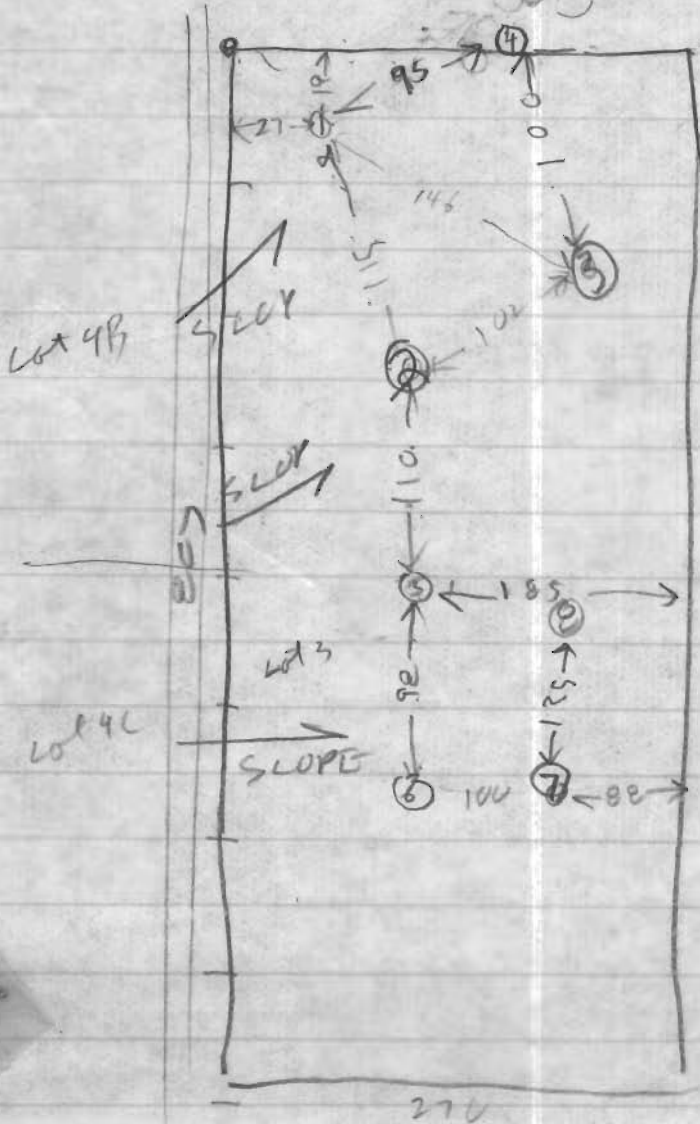 4
95
19
27
1
100
146
3
115
Lot 4B
SLOP
102
2
SLOP
110
5
185
8
Lot 3
98
125
Lot 4C
SLOPE
6
100
7
88
270